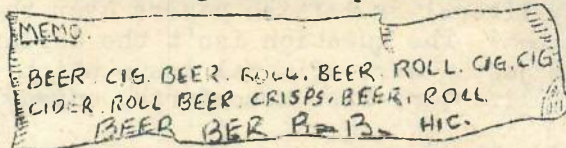 MEMO.
BEER CIG. BEER. ROLL. BEER. ROLL. CIG. CIG
CIDER. ROLL BEER CRISPS. BEER. ROLL.
BEER BER B=B= HIC.